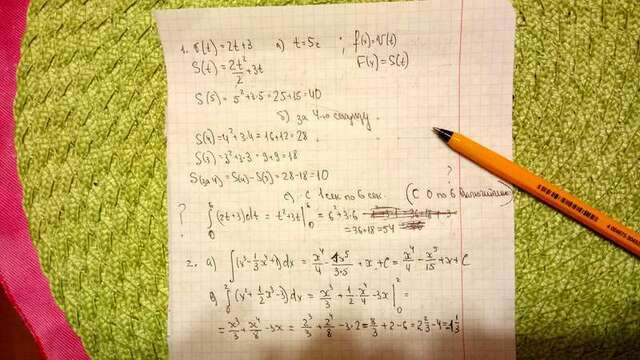 1. v(t) = 2t+3 a) t = 5c ; f(x) = v(t)
S(t) = 2t²/2 + 3t F(x) = S(t)
S(5) = 5²+3·5 = 25+15 = 40
б) за 4-ю секунду
S(4) = 4²+3·4 = 16+12 = 28
S(3) = 3²+3·3 = 9+9 = 18
S(за 4) = S(4) - S(3) = 28-18 = 10
с 1 сек по 6 сек. (С 0 по 6 включительно) ?
? ∫₀⁶ (2t+3)dt = t²+3t |₀⁶ = 6²+3·6
= 36+18 = 54
2. а) ∫(x³ - 1/3 x⁴ + 1)dx = x⁴/4 - x⁵/3·5 + x + C = x⁴/4 - x⁵/15 + x + C
∫₀² (x² + 1/2 x³ - 3)dx = x³/3 + 1/2 · x⁴/4 - 3x |₀² =
= x³/3 + x⁴/8 - 3x = 2³/3 + 2⁴/8 - 3·2 = 8/3 + 2 - 6 = 2 2/3 - 4 = -1 1/3